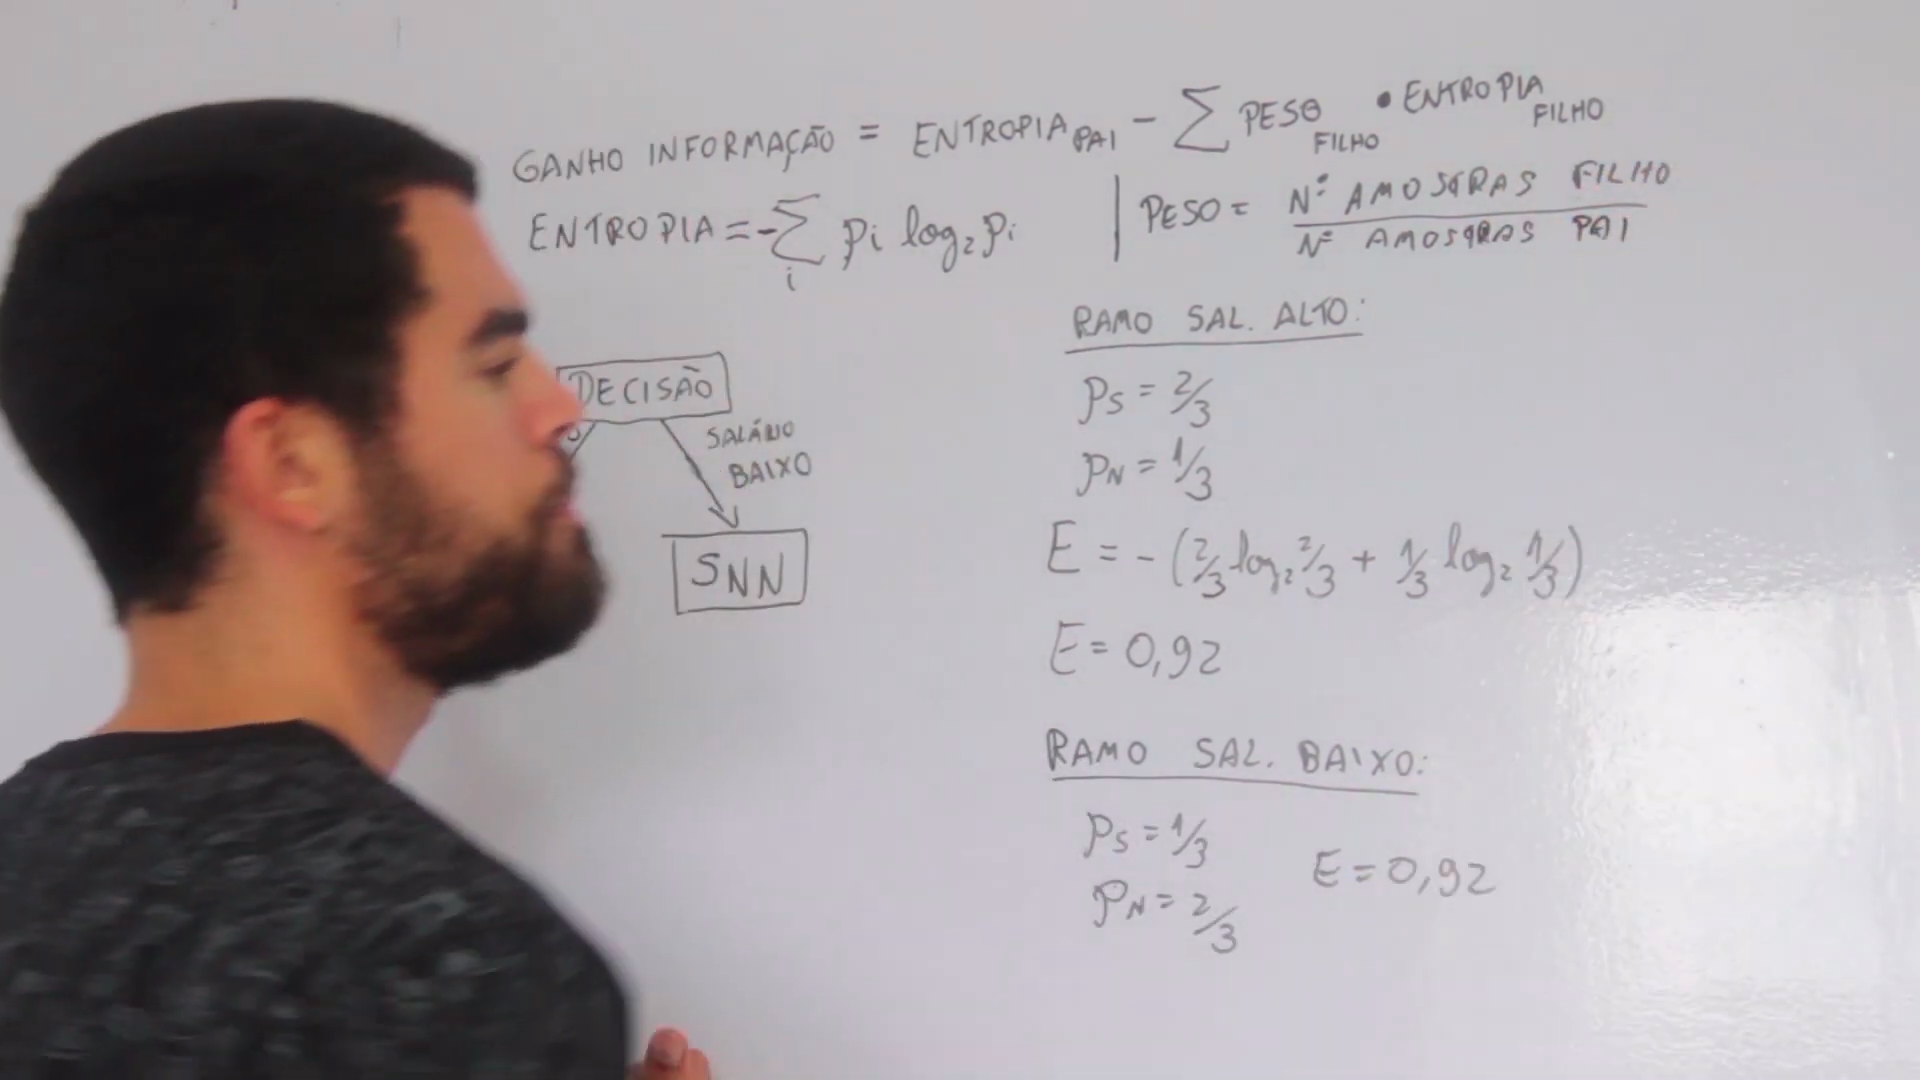 GANHO INFORMAÇÃO = ENTROPIA PAI - ∑ PESO FILHO • ENTROPIA FILHO
ENTROPIA = -∑ i pi log₂ pi | PESO = Nº AMOSTRAS FILHO / Nº AMOSTRAS PAI
DECISÃO
SALÁRIO
BAIXO
SNN
RAMO SAL. ALTO:
PS = 2/3
PN = 1/3
E = - (2/3 log₂ 2/3 + 1/3 log₂ 1/3)
E = 0,92
RAMO SAL. BAIXO:
PS = 1/3
E = 0,92
PN = 2/3